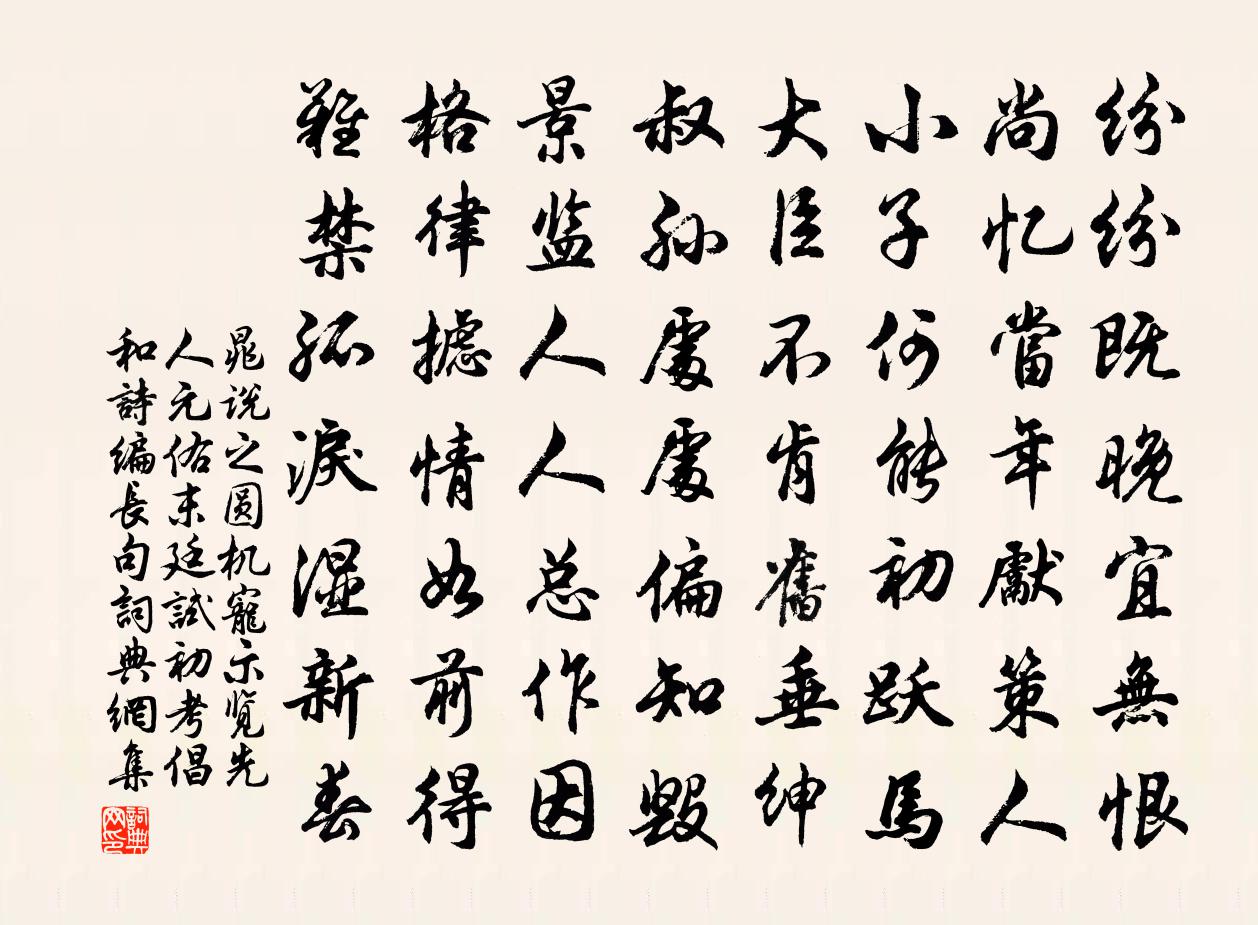 纷纷既晚宜無恨
尚忆當年獻策人
小子何能初跃馬
大臣不肯舊垂绅
叔孙處處偏知毁
景监人人总作因
格律摅情如前得
難禁孤淚湿新春
晁说之圆机寵示览先
人元佑末廷試初考倡
和詩编長句詞典網集
詞典网